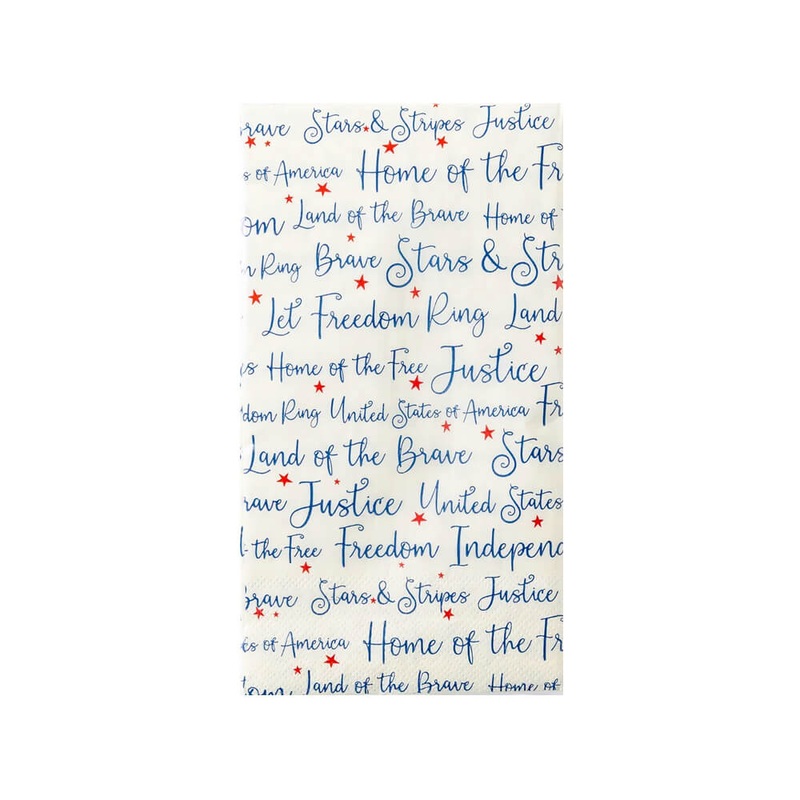 rave Stars & Stripes Justice
s of America Home of the Fr
om Land of the Brave Home of
n Ring Brave Stars & Str
Let Freedom Ring Land
us Home of the Free Justice
dom Ring United States of America Fr
Land of the Brave Stars
rave Justice United States
the Free Freedom Independ
Brave Stars & Stripes Justice
es of America Home of the Fr
om Land of the Brave Home of